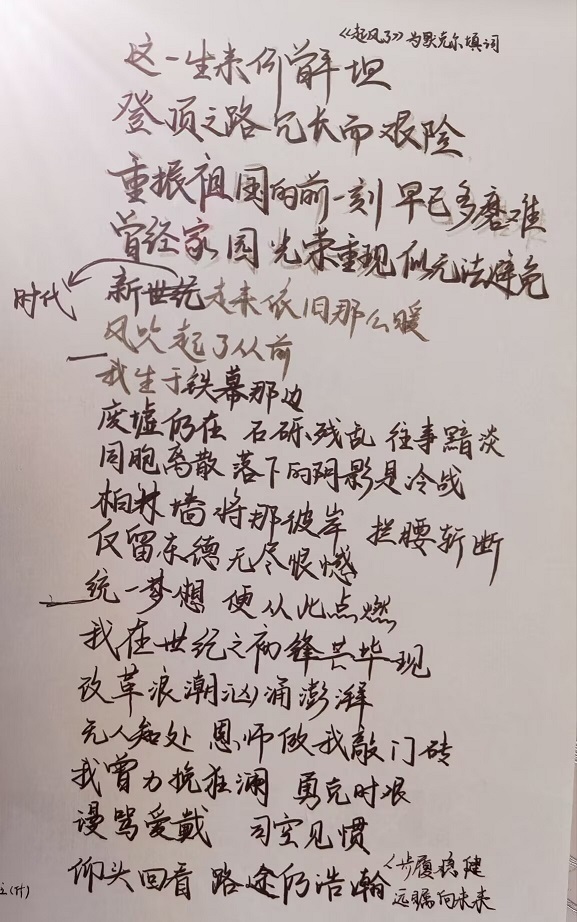 《起风了》为默克尔填词
这一生来何曾平坦
登顶之路冗长而艰险
重振祖国的前一刻 早已多磨难
曾经家园 光荣重现 似无法避免
时代
新世纪走来依旧那么暖
风吹起了从前
我生于铁幕那边
废墟仍在 石砾残乱 往事黯淡
同胞离散 落下的阴影是冷战
柏林墙将那彼岸 拦腰斩断
仅留东德无尽恨憾
统一梦想 便从此点燃
我在世纪之初锋芒毕现
改革浪潮汹涌澎湃
无人知处 恩师做我敲门砖
我曾力挽狂澜 勇克时艰
谩骂爱戴 司空见惯
仰头回看 路途仍浩瀚
步履稳健
远瞩向未来